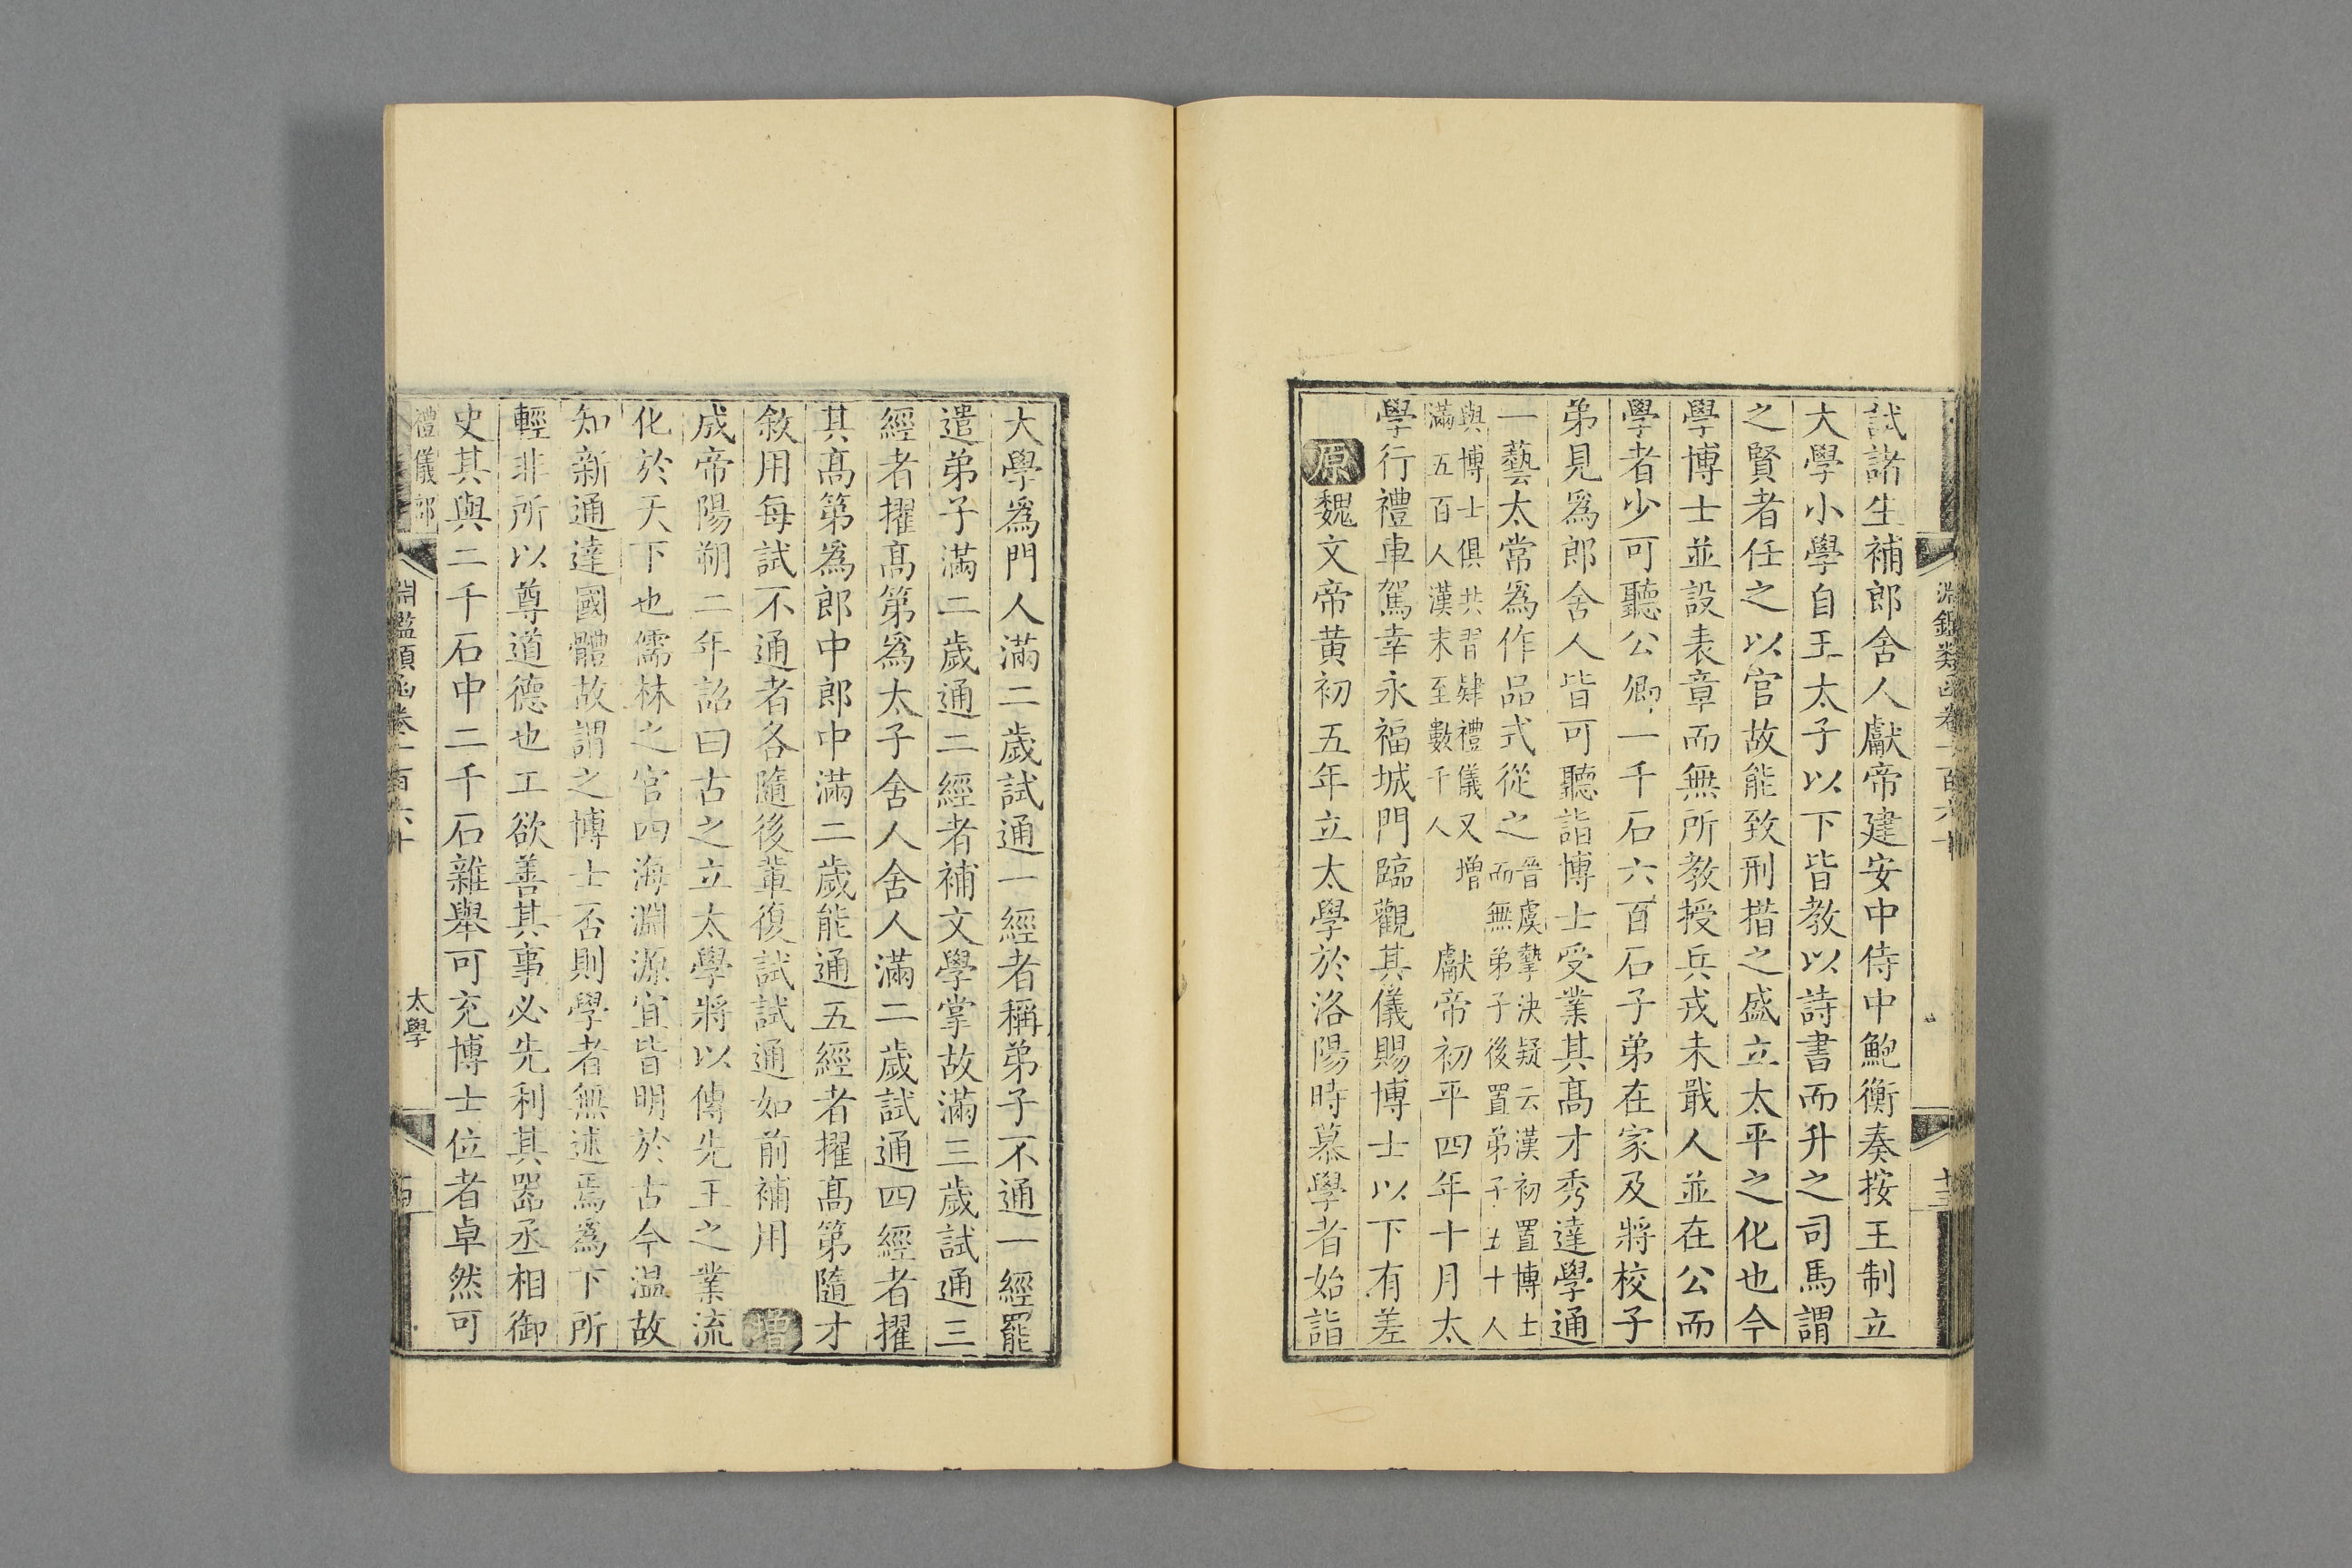 淵鑑類函卷一百六十
十三
試諸生補郎舍人獻帝建安中侍中鮑衡奏按王制立
大學小學自王太子以下皆教以詩書而升之司馬謂
之賢者任之以官故能致刑措之盛立太平之化也今
學博士並設表章而無所教授兵戎未戢人並在公而
學者少可聽公卿一千石六百石子弟在家及將校子
弟見爲郎舍人皆可聽詣博士受業其高才秀達學通
一藝太常爲作品式從之晉虞摯決疑云漢初置博士
而無弟子後置弟子五十人
與博士俱共習肄禮儀又增
滿五百人漢末至數千人
獻帝初平四年十月太
學行禮車駕幸永福城門臨觀其儀賜博士以下有差
原魏文帝黄初五年立太學於洛陽時慕學者始詣
大學爲門人滿二歲試通一經者稱弟子不通一經罷
遣弟子滿二歲通二經者補文學掌故滿三歲試通三
經者擢高第爲太子舍人舍人滿二歲試通四經者擢
其高第爲郎中郎中滿二歲能通五經者擢高第隨才
敘用每試不通者各隨後輩復試試通如前補用 增
成帝陽朔二年詔曰古之立太學將以傳先王之業流
化於天下也儒林之官四海淵源宜皆明於古今温故
知新通達國體故謂之博士否則學者無述焉爲下所
輕非所以尊道德也工欲善其事必先利其器丞相御
史其與二千石中二千石雜舉可充博士位者卓然可
禮儀部
淵鑑類函卷一百六十
太學